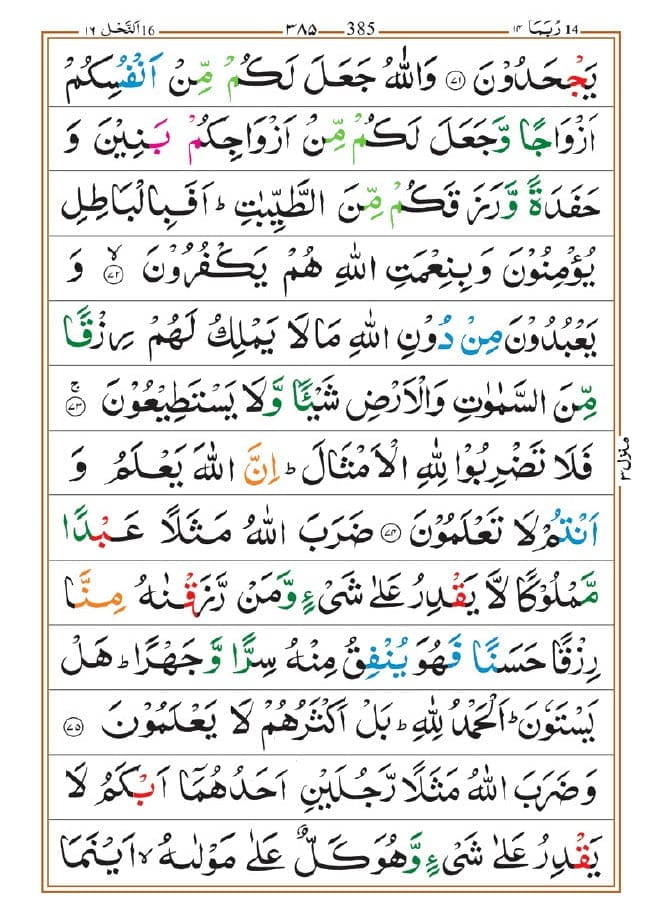 16 اَلنَّحْل ١٦ 385 ٣٨٥ 14 رُبَمَا ١٤
يَجْحَدُوْنَ ۝٧١ وَاللّٰهُ جَعَلَ لَكُمْ مِّنْ اَنْفُسِكُمْ
اَزْوَاجًا وَّجَعَلَ لَكُمْ مِّنْ اَزْوَاجِكُمْ بَنِيْنَ وَ
حَفَدَةً وَّرَزَقَكُمْ مِّنَ الطَّيِّبٰتِ ؕ اَفَبِالْبَاطِلِ
يُؤْمِنُوْنَ وَبِنِعْمَتِ اللّٰهِ هُمْ يَكْفُرُوْنَ ۙ۝٧٢ وَ
يَعْبُدُوْنَ مِنْ دُوْنِ اللّٰهِ مَا لَا يَمْلِكُ لَهُمْ رِزْقًا
مِّنَ السَّمٰوٰتِ وَالْاَرْضِ شَيْـًٔا وَّلَا يَسْتَطِيْعُوْنَ ۚ۝٧٣
فَلَا تَضْرِبُوْا لِلّٰهِ الْاَمْثَالَ ؕ اِنَّ اللّٰهَ يَعْلَمُ وَ
اَنْتُمْ لَا تَعْلَمُوْنَ ۝٧٤ ضَرَبَ اللّٰهُ مَثَلًا عَبْدًا
مَّمْلُوْكًا لَّا يَقْدِرُ عَلٰى شَىْءٍ وَّمَنْ رَّزَقْنٰهُ مِنَّا
رِزْقًا حَسَنًا فَهُوَ يُنْفِقُ مِنْهُ سِرًّا وَّجَهْرًا ؕ هَلْ
يَسْتَوٗنَ ؕ اَلْحَمْدُ لِلّٰهِ ؕ بَلْ اَكْثَرُهُمْ لَا يَعْلَمُوْنَ ۝٧٥
وَضَرَبَ اللّٰهُ مَثَلًا رَّجُلَيْنِ اَحَدُهُمَاۤ اَبْكَمُ لَا
يَقْدِرُ عَلٰى شَىْءٍ وَّهُوَ كَلٌّ عَلٰى مَوْلٰىهُ ۙ اَيْنَمَا
منزل ٣